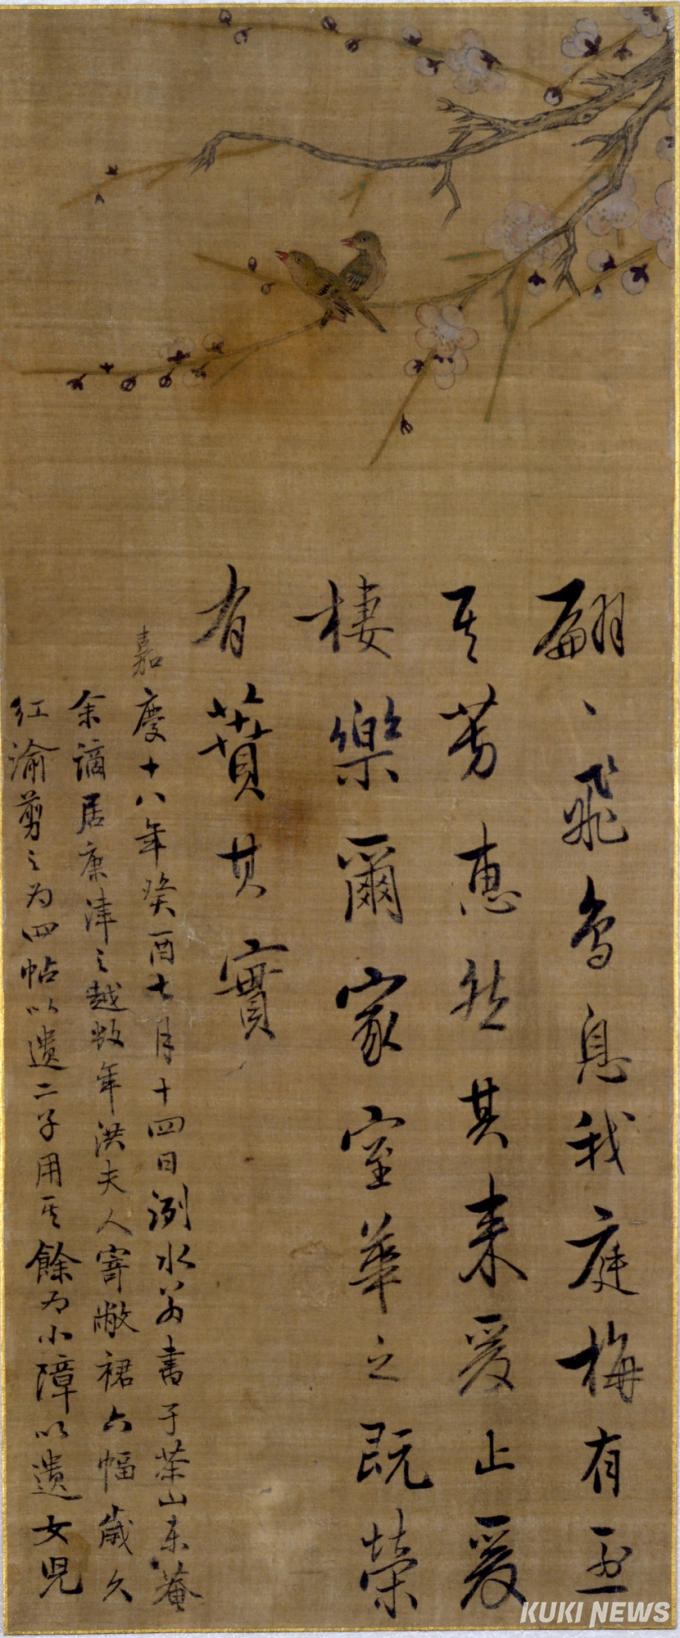 翩〻飛鳥息我庭梅有烈
其芳惠然其來爰止爰
棲樂爾家室華之既榮
有蕡其實
嘉慶十八年癸酉七月十四日洌水翁書于茶山東菴
余謫居康津之越數年洪夫人寄敝裙六幅歲久
紅渝剪之为四帖以遺二子用其餘为小障以遺女兒
KUKI NEWS